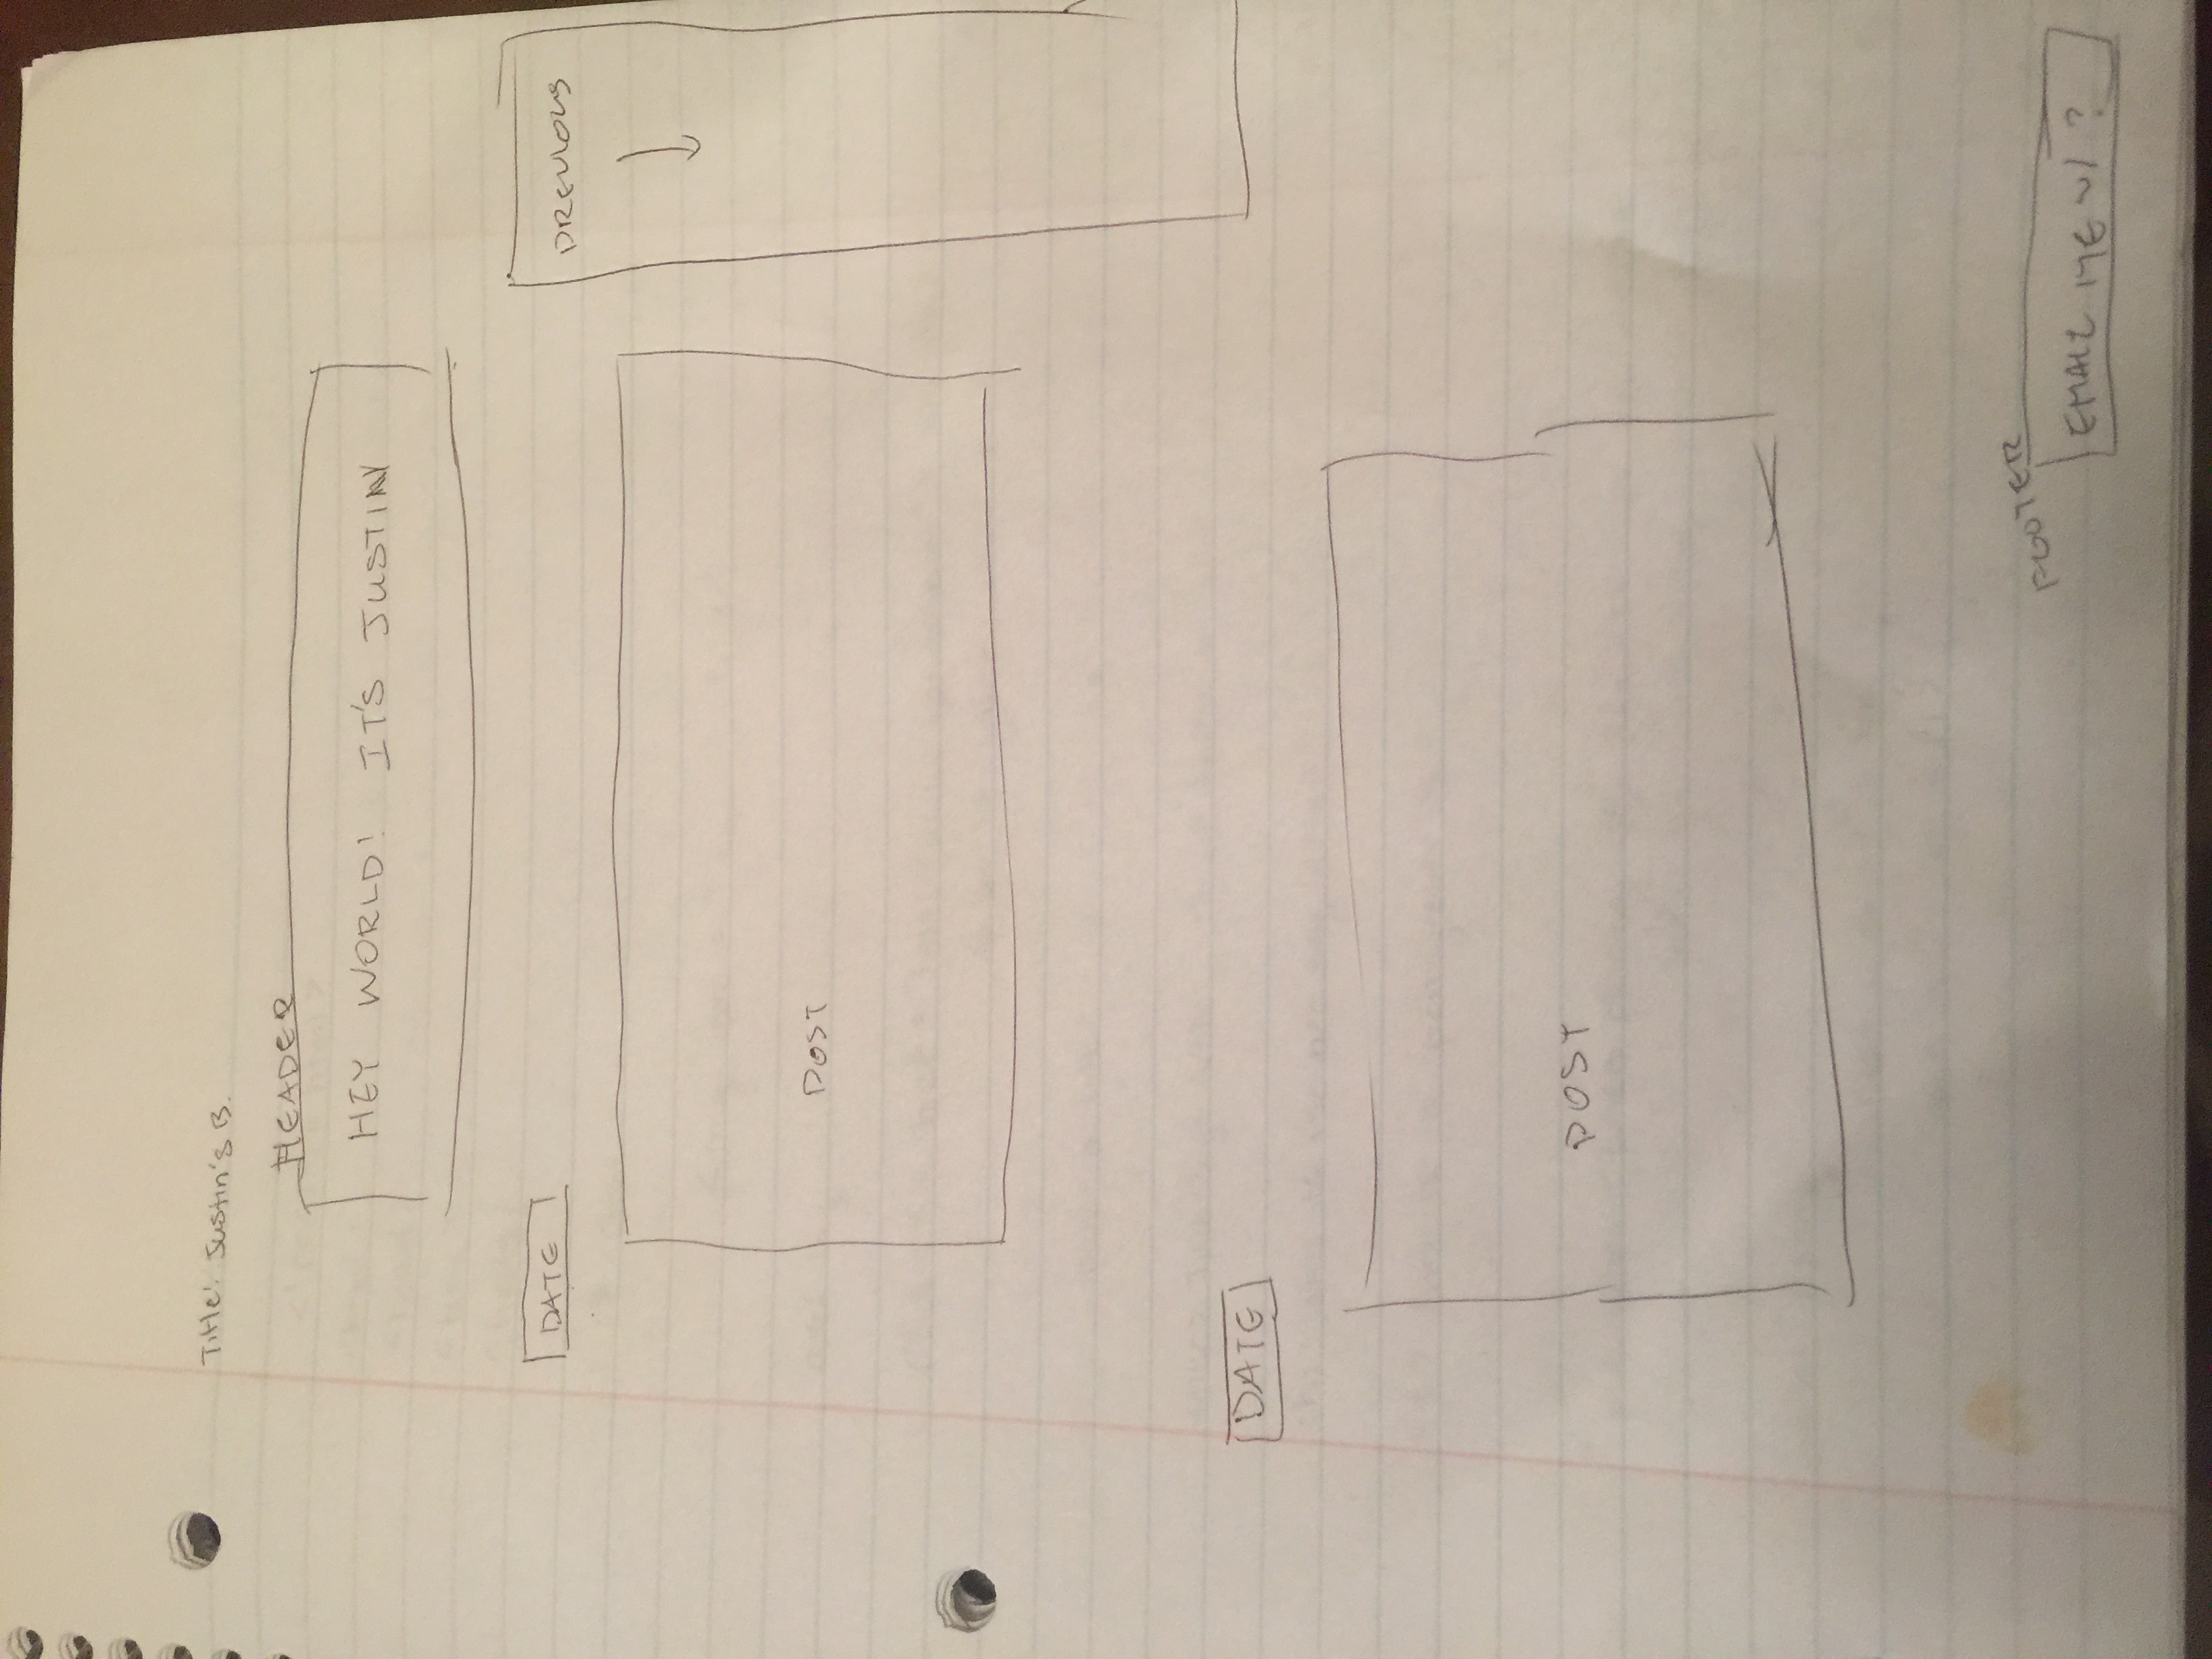 Title: Justin's B.
HEADER
HEY WORLD! IT'S JUSTIN
DATE
PREVIOUS
POST
DATE
POST
FOOTER
EMAIL ME W/ ?